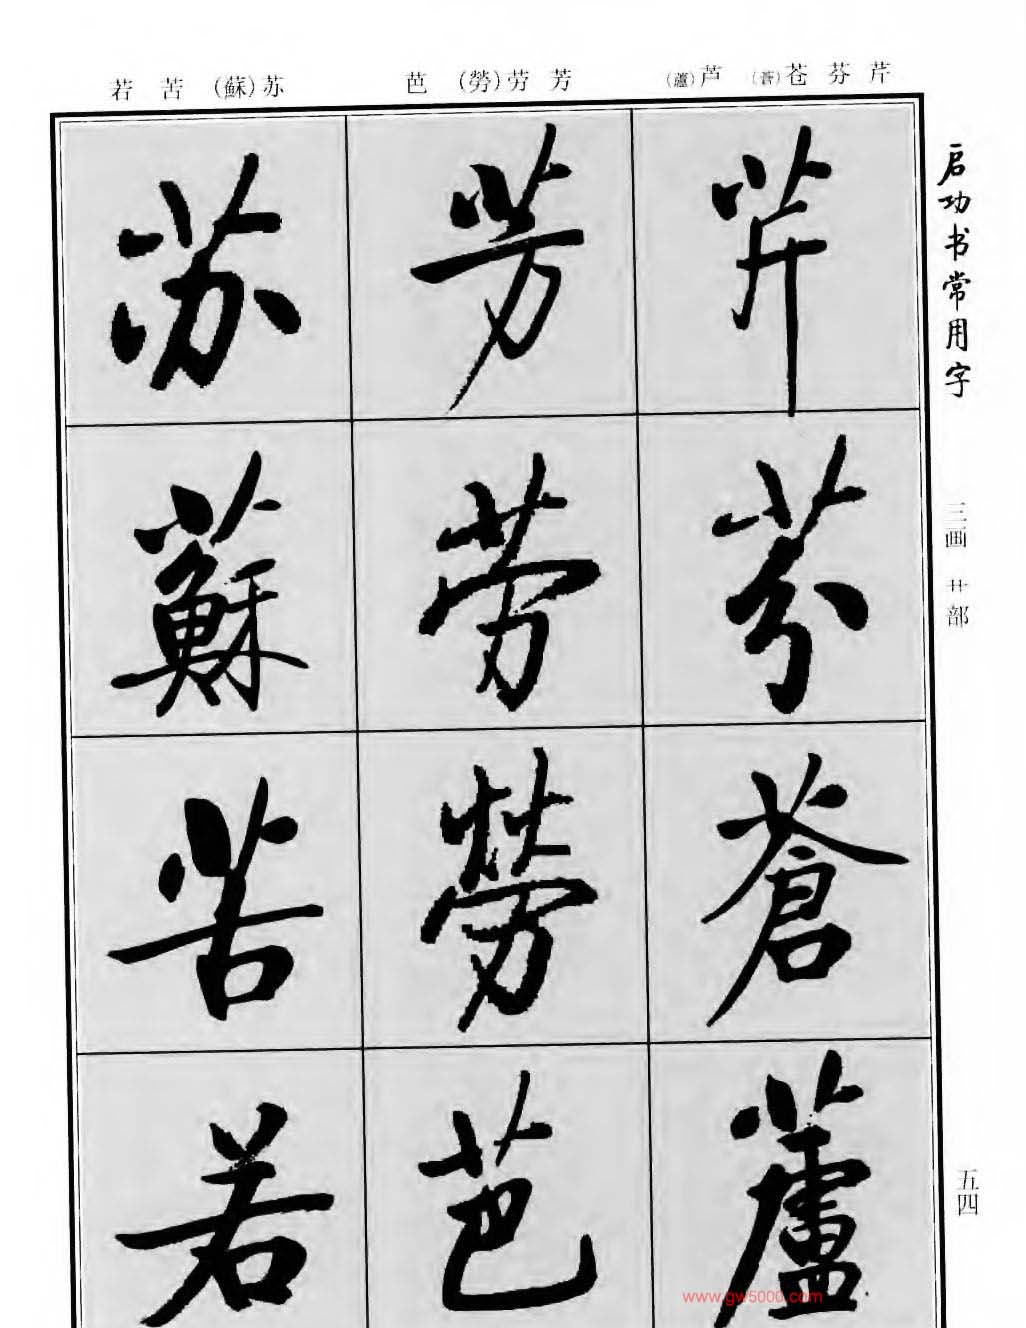 启功书常用字
三画 艹部
五四
芹 芬 苍(蒼) 芦(蘆)
芳 劳(勞) 芭
苏(蘇) 苦 若
芹
芬
蒼
蘆
芳
劳
勞
芭
苏
蘇
苦
若
www.gw5000.com